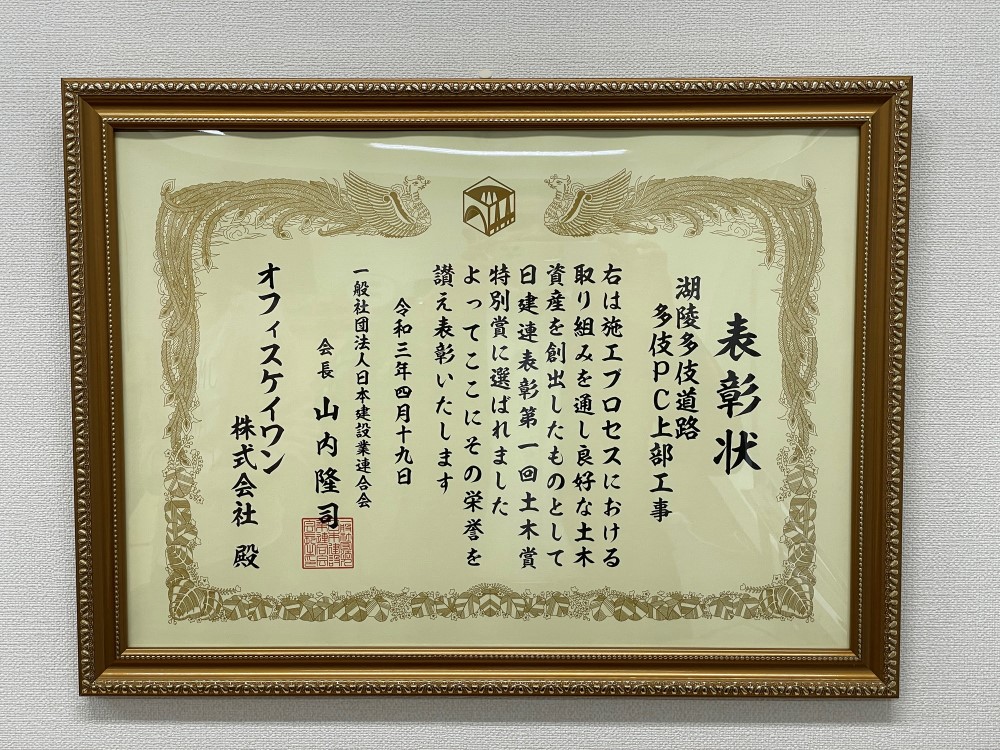 表彰状
湖陵多伎道路
多伎PC上部工事
右は施工プロセスにおける
取り組みを通し良好な土木
資産を創出したものとして
日建連表彰第一回土木賞
特別賞に選ばれました
よってここにその栄誉を
讃え表彰いたします
令和三年四月十九日
一般社団法人日本建設業連合会
会長 山内隆司
オフィスケイワン
株式会社 殿